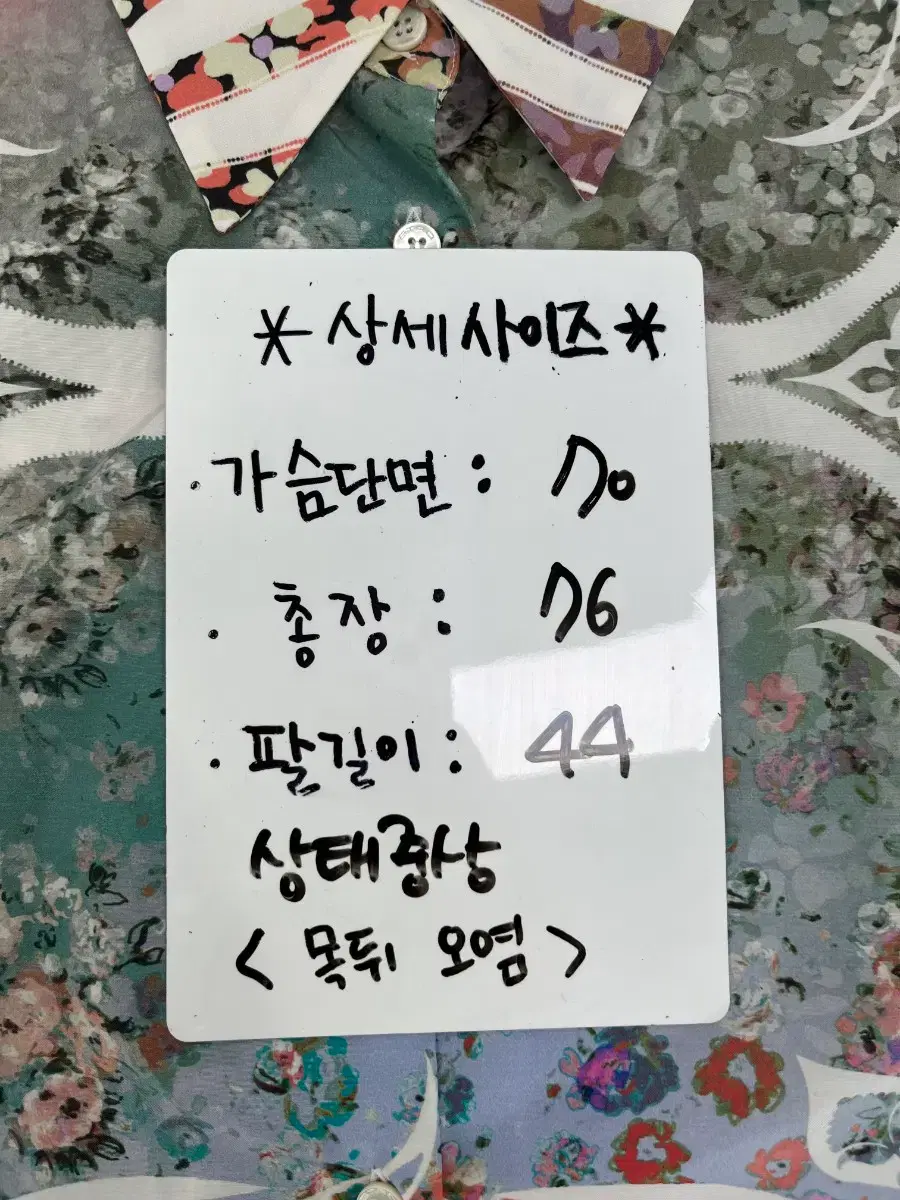 * 상세 사이즈 *
· 가슴단면 : 70
· 총장 : 76
· 팔길이 : 44
상태중상
< 목뒤 오염 >